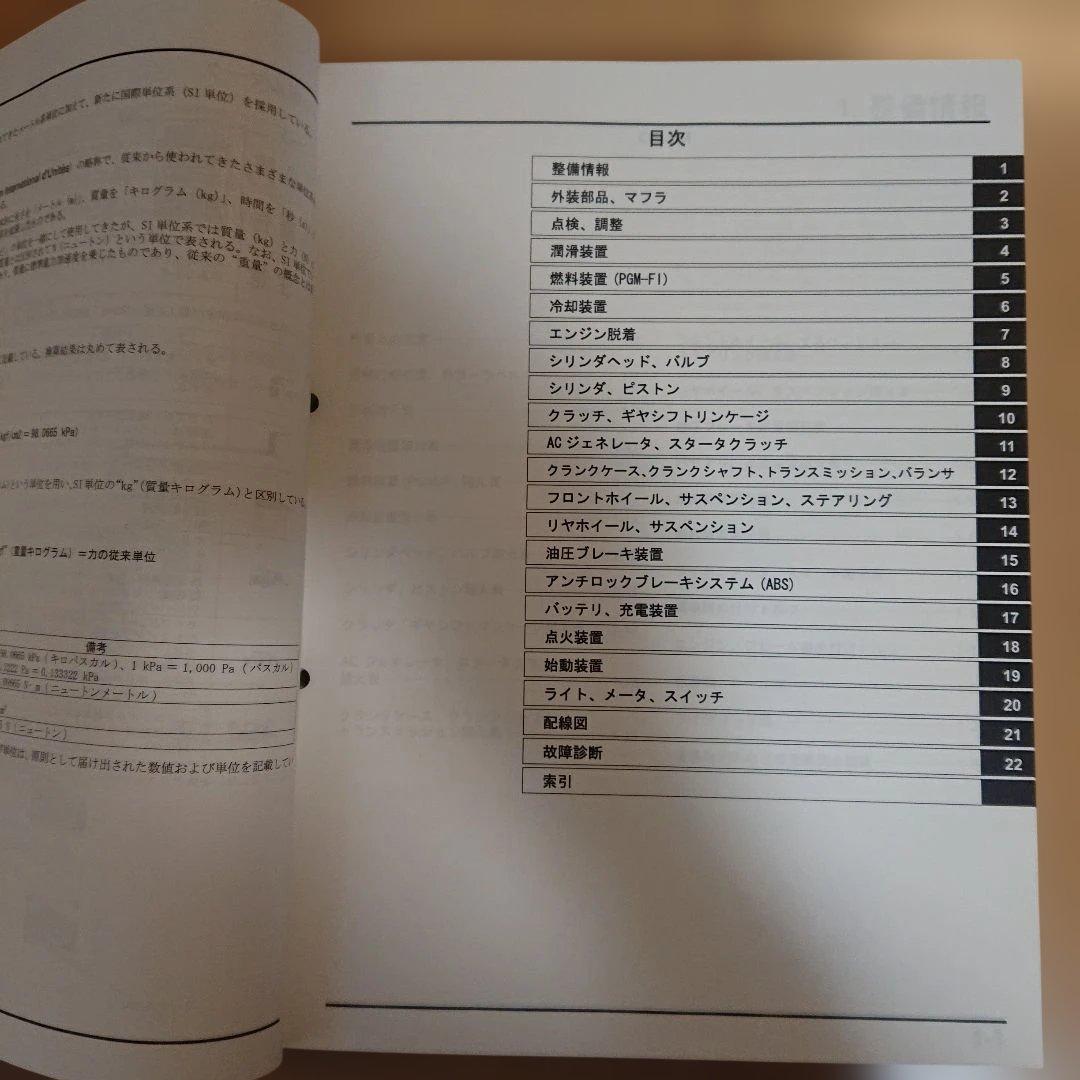 新たに国際単位系（SI 単位）を採用している。
の略称で、従来から使われてきたさまざまな単位系
質量を「キログラム（kg）」、時間を「秒
して使用してきたが、SI 単位系では質量（kg）と力
（ニュートン）という単位で表される。なお、SI 単位で
を乗じたものであり、従来の“重量”の概念とは
している。換算結果は丸めて表される。
＝98.0665 kPa)
という単位を用い、SI 単位の“kg”（質量キログラム）と区別している
（重量キログラム）＝力の従来単位
備考
kPa（キロパスカル）、1 kPa ＝ 1,000 Pa（パスカル）
Pa＝0.133322 kPa
N・m（ニュートンメートル）
（ニュートン）
単位は、原則として届け出された数値および単位を記載してい
目次
整備情報 1
外装部品、マフラ 2
点検、調整 3
潤滑装置 4
燃料装置 (PGM-FI) 5
冷却装置 6
エンジン脱着 7
シリンダヘッド、バルブ 8
シリンダ、ピストン 9
クラッチ、ギヤシフトリンケージ 10
AC ジェネレータ、スタータクラッチ 11
クランクケース、クランクシャフト、トランスミッション、バランサ 12
フロントホイール、サスペンション、ステアリング 13
リヤホイール、サスペンション 14
油圧ブレーキ装置 15
アンチロックブレーキシステム (ABS) 16
バッテリ、充電装置 17
点火装置 18
始動装置 19
ライト、メータ、スイッチ 20
配線図 21
故障診断 22
索引